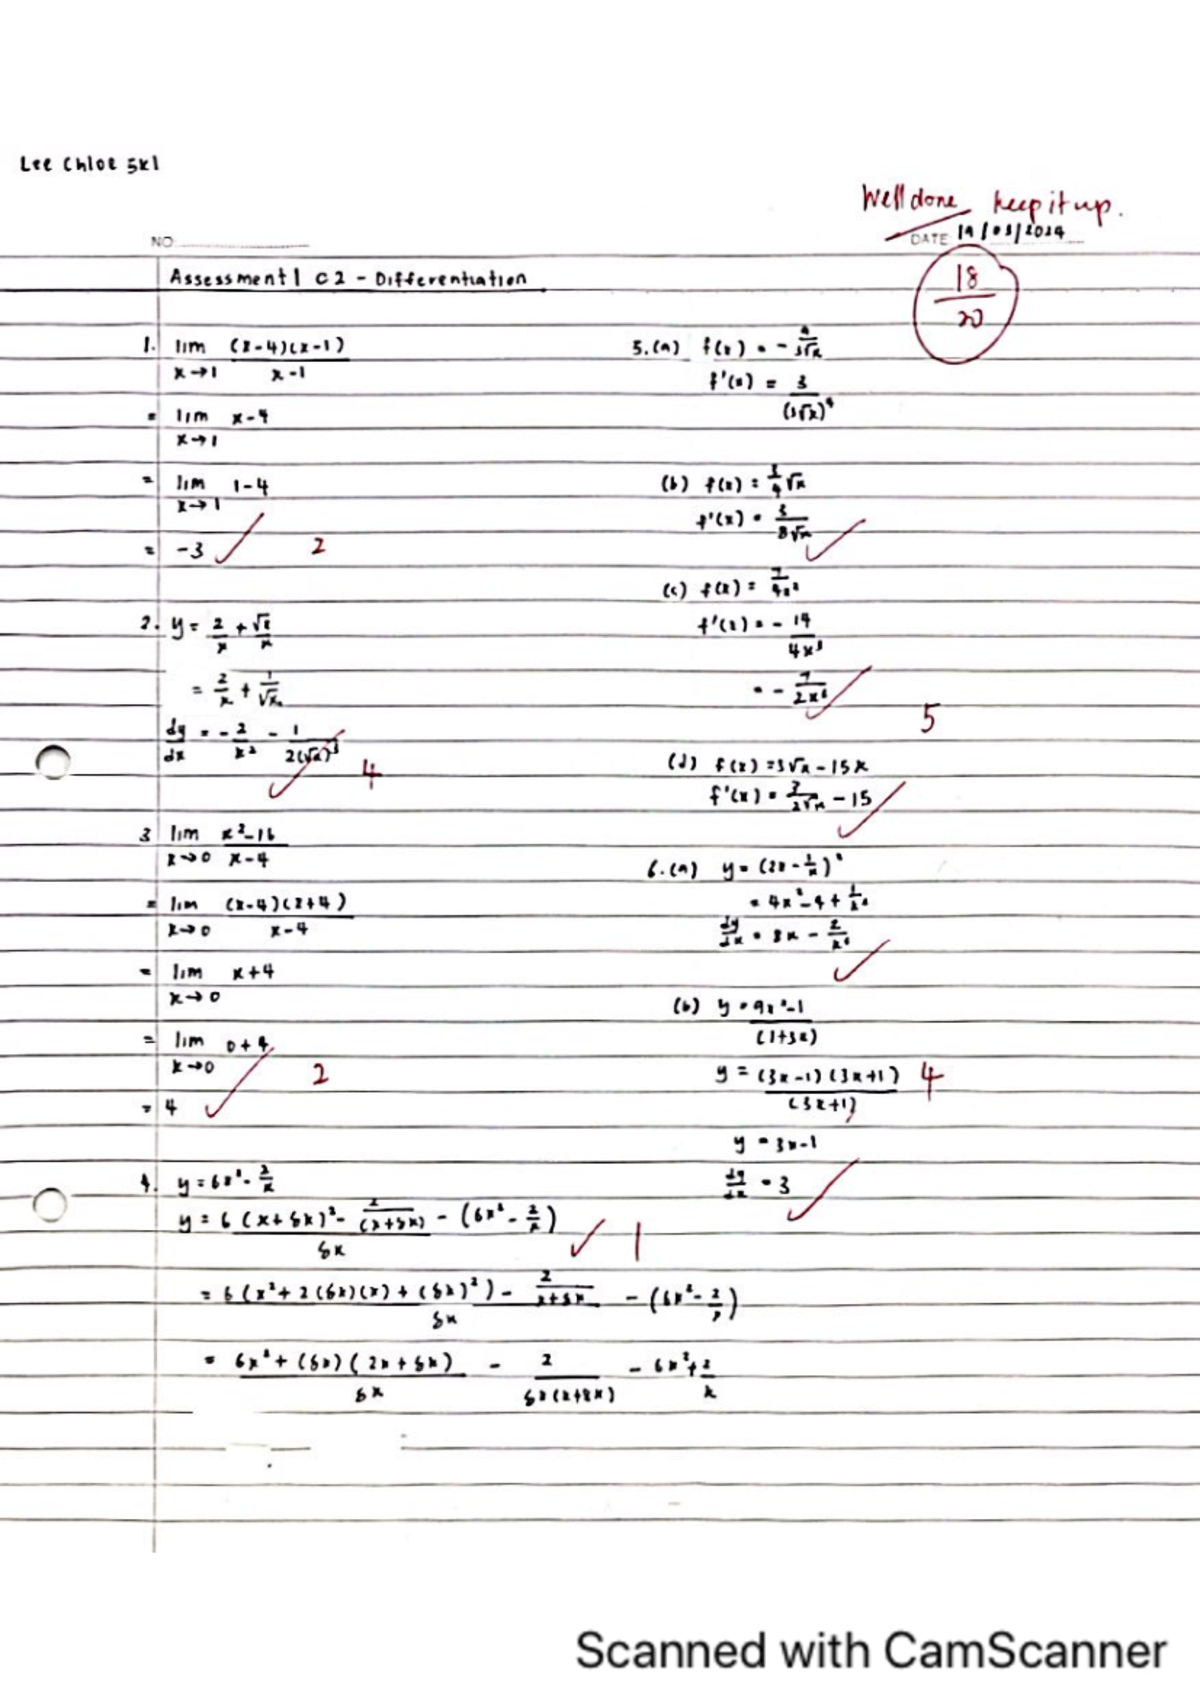 Lee Chloe 5K1
Well done keep it up.
NO.
DATE 19/03/2024
Assessment 1 C2 - Differentiation
18/20
1. lim x→1 (x-4)(x-1) / x-1
= lim x→1 x-4
= lim x→1 1-4
= -3
2
2. y = 2/x + √x/x
= 2/x + 1/√x
dy/dx = -2/x² - 1/2(√x)³
4
3 lim x→0 x²-16 / x-4
= lim x→0 (x-4)(x+4) / x-4
= lim x→0 x+4
= lim x→0 0+4
= 4
2
4. y = 6x² - 2/x
y = 6(x+δx)² - 2/(x+δx) - (6x² - 2/x) / δx
1
= 6(x² + 2(δx)(x) + (δx)²) - 2/x+δx / δx - (6x² - 2/x)
= 6x² + (δx)(2x+δx) / δx - 2 / δx(x+δx) - 6x² + 2/x
5.(a) f(x) = -
f'(x) = 3 / (3√x)⁴
(b) f(x) = 3/4 √x
f'(x) = 3/8√x
(c) f(x) = 7/4x²
f'(x) = - 14/4x³
= - 7/2x³
5
(d) f(x) = 3√x - 15x
f'(x) = 3/2√x - 15
6.(a) y = (2x - 1/x)²
= 4x² - 4 + 1/x²
dy/dx = 8x - 2/x³
(b) y = 9x²-1 / (1+3x)
y = (3x-1)(3x+1) / (3x+1)
4
y = 3x-1
dy/dx = 3
Scanned with CamScanner